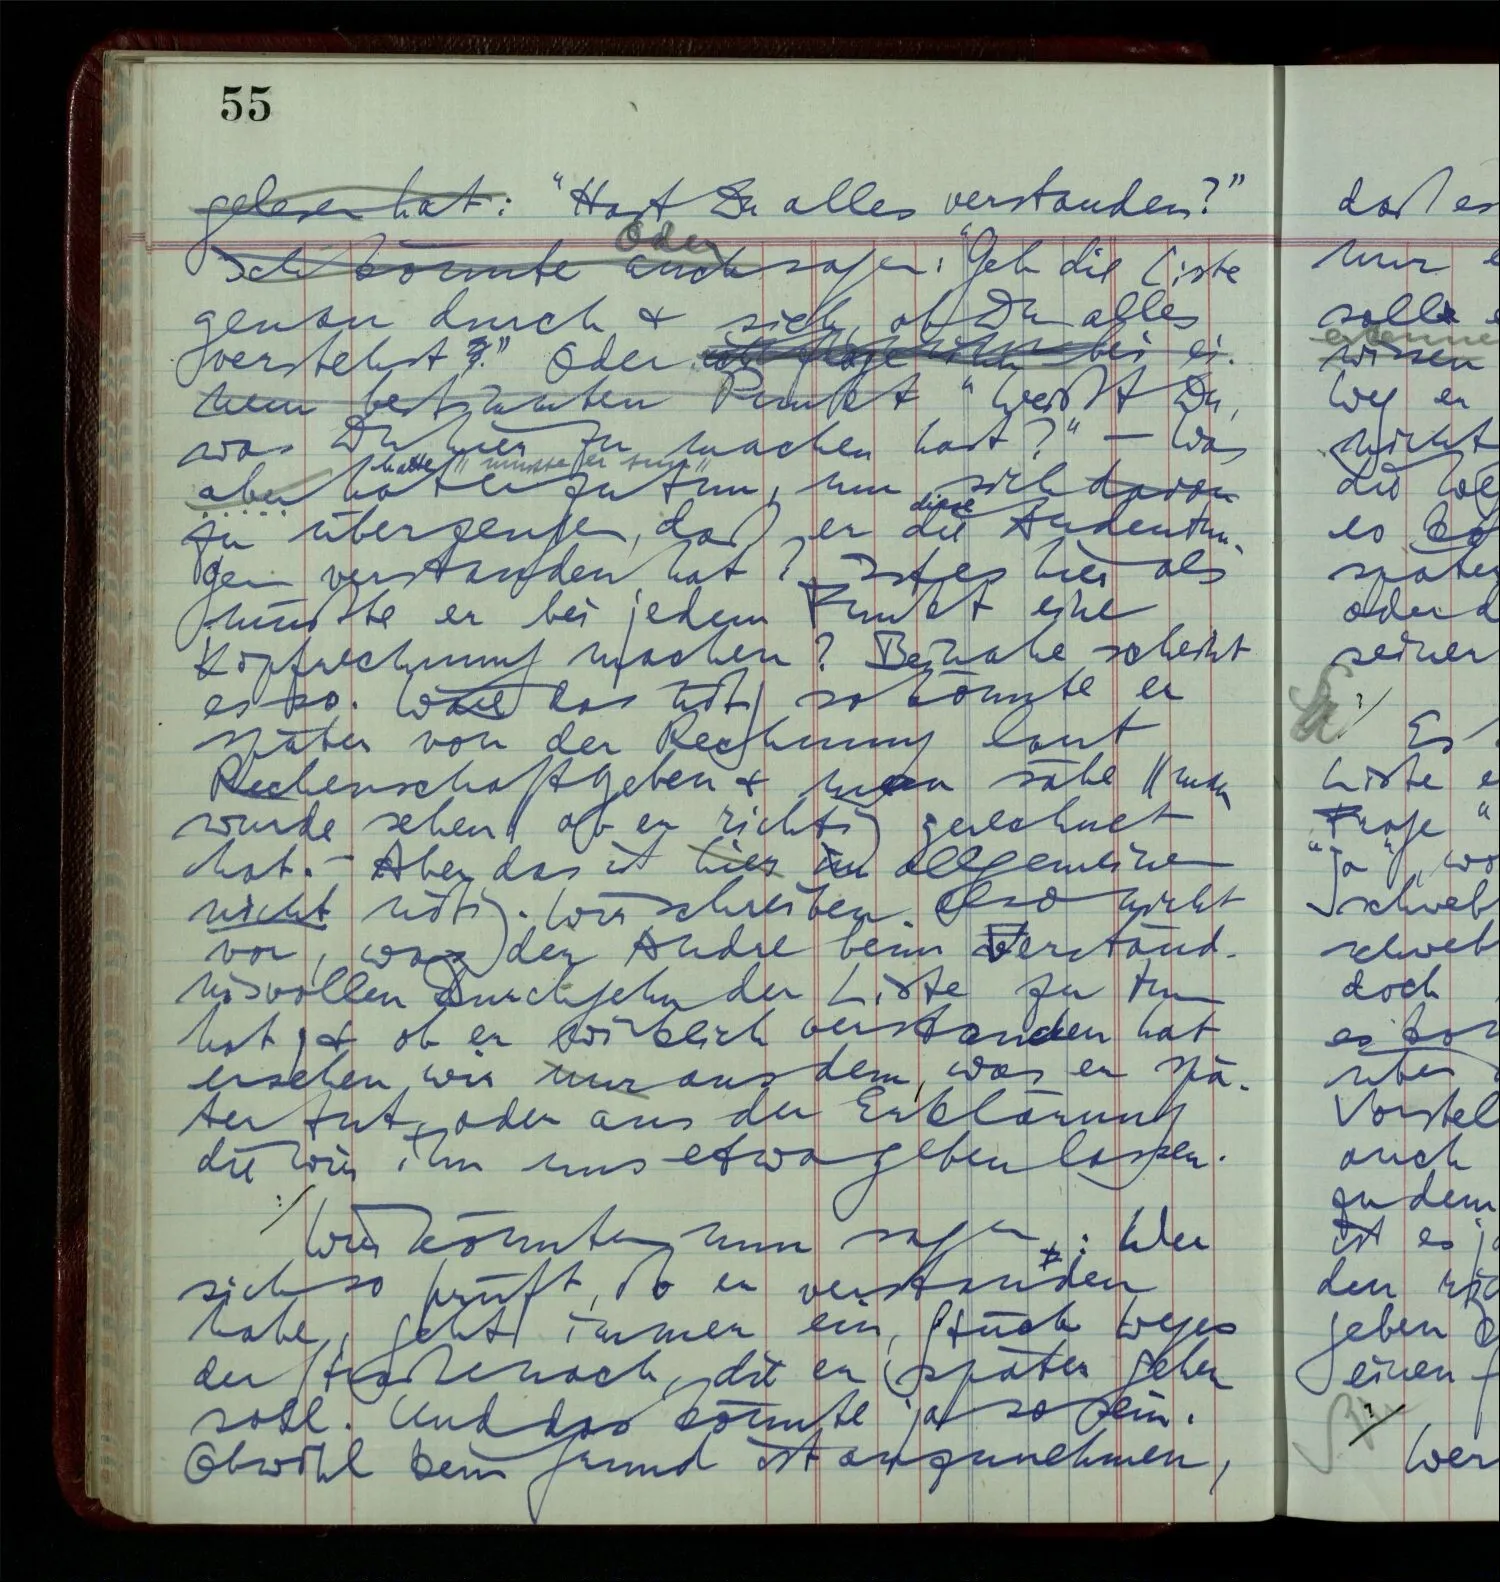 55
gelesen hat: "Hast Du alles verstanden?"
Oder
Ich könnte auch sagen: "Geh die Liste
genau durch & sieh, ob Du alles
verstehst?" Oder bei ei-
nem bestimmten Punkt "Weißt Du,
was Du hier zu machen hast?" — Was
hatte "müsste er tun"
aber hat er zu tun, um sich davon
diese
zu überzeugen, daß er die Andeutun-
gen verstanden hat? Ist es hier als
müßte er bei jedem Punkt eine
Kopfrechnung machen? Beinahe scheint
es so. Wäre das nötig so könnte er
später von der Rechnung laut
Rechenschaft geben & man sähe // man
würde sehen // ob er richtig gerechnet
hat. – Aber das ist hier im allgemeinen
nicht nötig. Wir schreiben also nicht
vor, was der Andre beim Verständ-
nisvollen Durchgehn der Liste zu tun
hat; & ob er wirklich verstanden hat
ersehen wir nur aus dem, was er spä-
ter tut, oder aus der Erklärung
die wir ihn uns etwa geben lassen.
Wir könnten nun sagen: Wer
sich so prüft, ob er verstanden
habe, geht immer ein Stück Weges
der Straße nach, die er später gehen
soll. Und das könnte ja so sein.
Obwohl kein Grund ist anzunehmen,
daß es
nur
wissen
Weg er
nicht
die Weg
es
später
oder d
seiner
Es
Liste e
Frage "
"ja", wo
schweb
schweb
doch
über
Vorstel
auch
zu dem
ist es ja
den
geben
einen
Wer